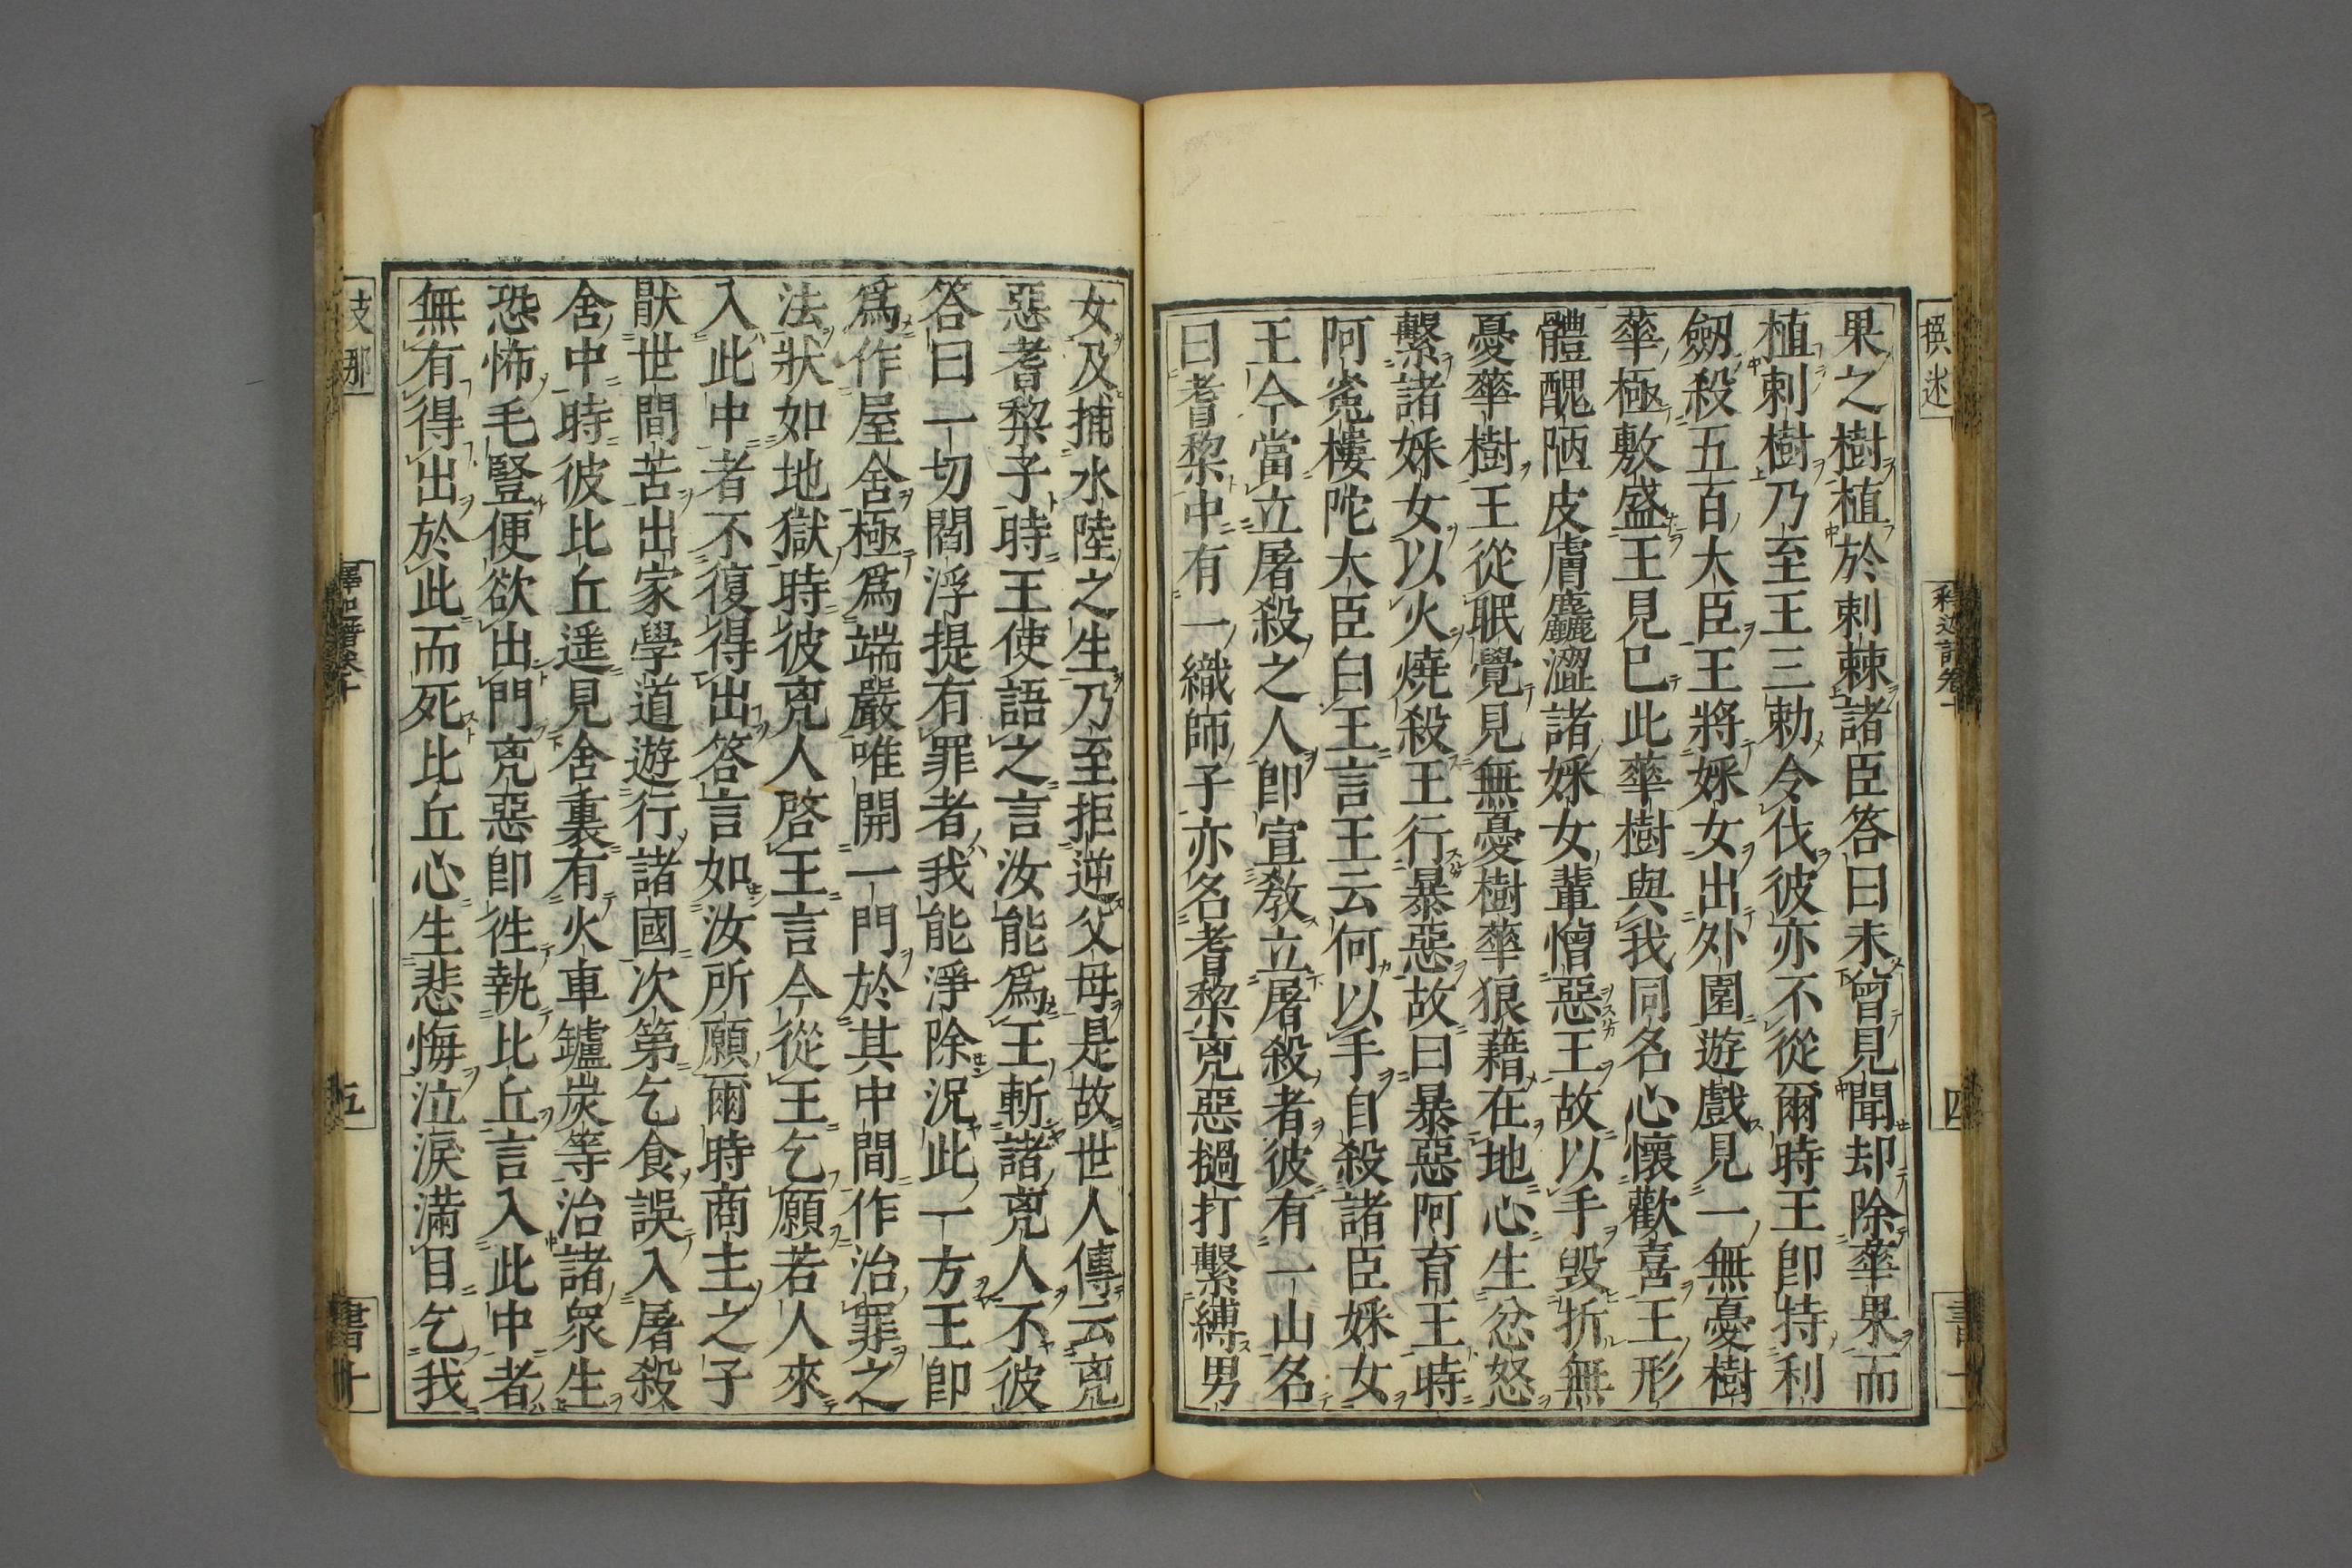 果之樹植於刺棘諸臣答曰未曾見聞却除華果而
植刺樹乃至王三勅令伐彼亦不從爾時王即持利
劒殺五百大臣王將婇女出外園遊戲見一無憂樹
華極敷盛王見已此華樹與我同名心懷歡喜王形
體醜陋皮膚麤澀諸婇女輩憎惡王故以手毀折無
憂華樹王從眠覺見無憂樹華狼藉在地心生忿怒
繫諸婇女以火燒殺王行暴惡故曰暴惡阿育王時
阿㝹樓陀大臣白王言王云何以手自殺諸臣婇女
王今當立屠殺之人即宣教立屠殺者彼有一山名
曰耆黎中有一織師子亦名耆黎兇惡撾打繫縛男
女及捕水陸之生乃至拒逆父母是故世人傳云兇
惡耆黎子時王使語之言汝能為王斬諸兇人不彼
答曰一切閻浮提有罪者我能淨除況此一方王即
爲作屋舍極爲端嚴唯開一門於其中間作治罪之
法狀如地獄時彼兇人啓王言今從王乞願若人來
入此中者不復得出答言如汝所願爾時商主之子
厭世間苦出家學道遊行諸國次第乞食誤入屠殺
舍中時彼比丘遥見舍裏有火車鑪炭等治諸衆生
恐怖毛豎便欲出門兇惡即徃執比丘言入此中者
無有得出於此而死比丘心生悲悔泣淚滿目乞我
撰述
釋迦譜卷十
四
支那
釋迦譜卷十
五
書十